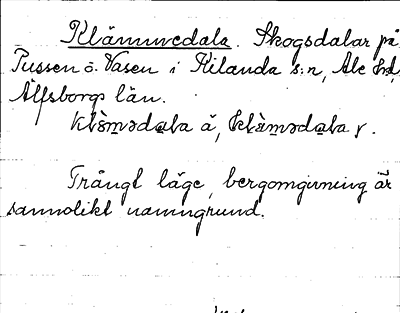 Klämmedala. Skogsdalar på
Tussen o. Vasen i Kilanda s:n, Ale hd,
Älfsborgs län.
å,
Trångt läge, bergomgivning är
sannolikt namngrund.